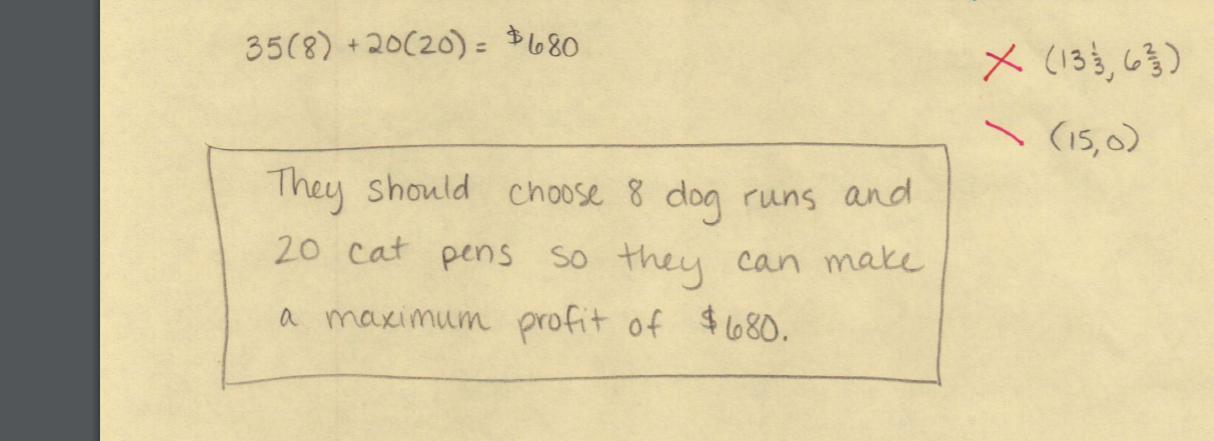 35(8) + 20(20) = $680
(13 1/3, 6 2/3)
(15, 0)
They should choose 8 dog runs and
20 cat pens so they can make
a maximum profit of $680.